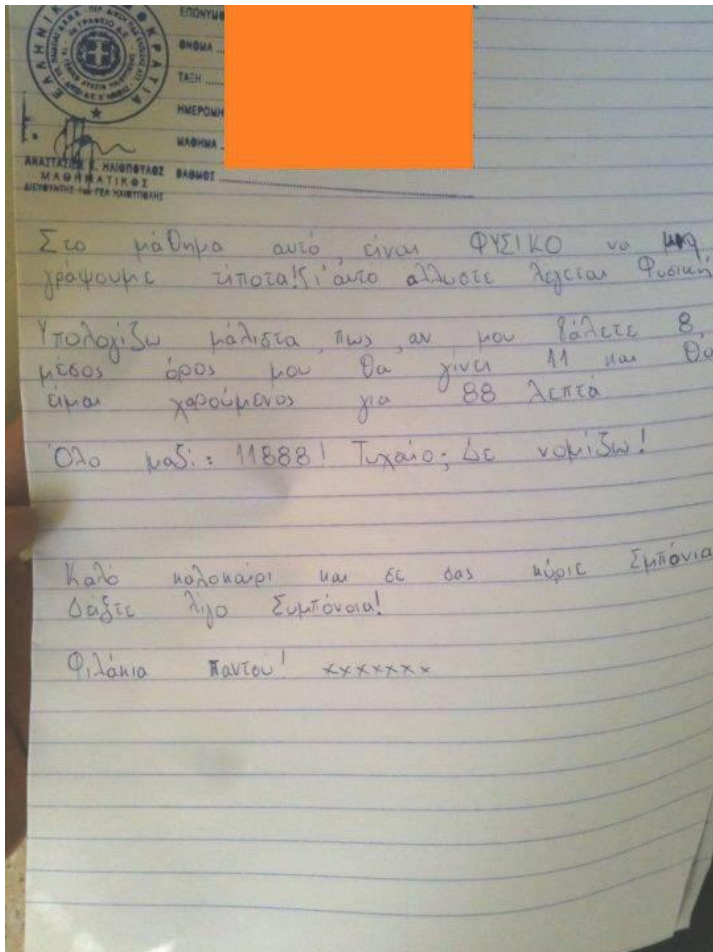 ΕΠΩΝΥΜΟ
ΟΝΟΜΑ
ΤΑΞΗ
ΗΜΕΡΟΜΗ
ΜΑΘΗΜΑ
ΒΑΘΜΟΣ
ΜΑΘΗΜΑΤΙΚΟΣ
Στο μάθημα αυτό, είναι ΦΥΣΙΚΟ να μη
γράψουμε τίποτα! Γι' αυτο αλλωστε λεγεται Φυσική
Υπολογίζω μάλιστα, πως, αν μου βάλετε 8,
μέσος όρος μου θα γίνει 11 και θα
είμαι χαρούμενος για 88 λεπτά
Όλο μαζί: 11888! Τυχαίο; Δε νομίζω!
Καλό καλοκαίρι και σε σας κύριε Σμπόνια
Δείξτε λίγο Συμπόνοια!
Φιλάκια παντού! xxxxxxx